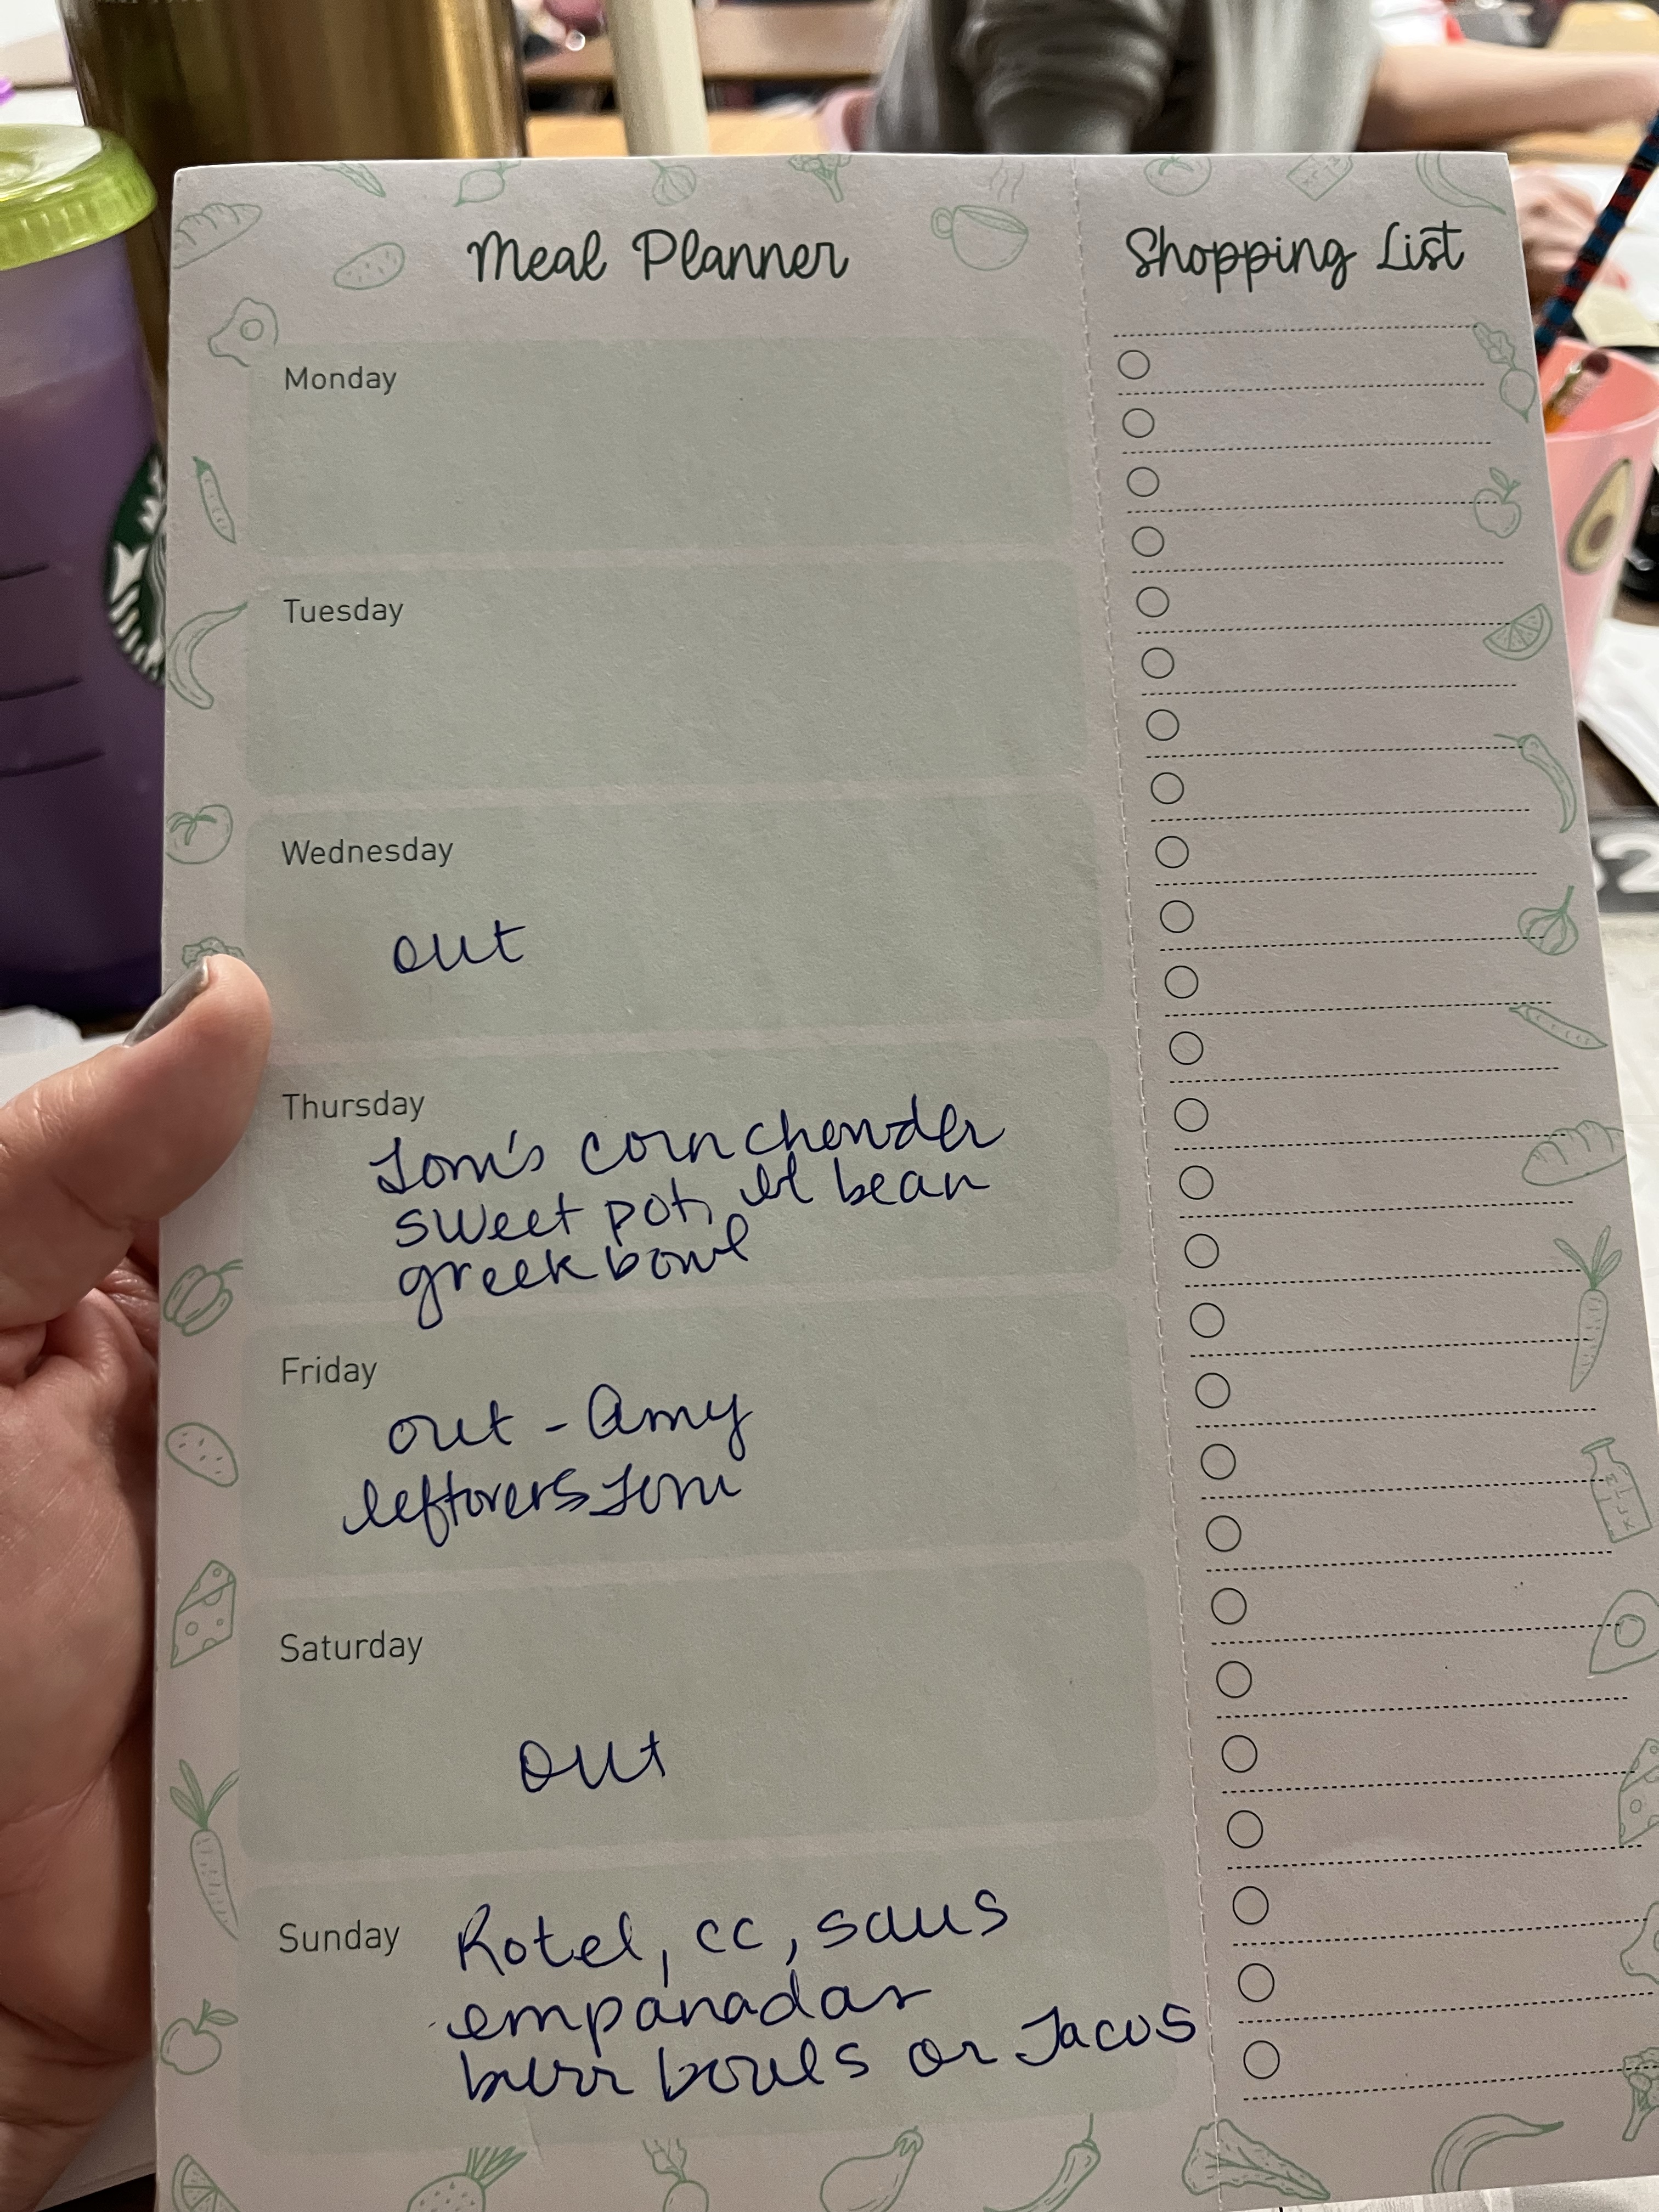 Meal Planner
Shopping List
Monday
Tuesday
Wednesday
out
Thursday
Tom's corn chowder
sweet pot, bl bean
greek bowl
Friday
out - Amy
leftovers Tom
Saturday
out
Sunday
Rotel, cc, saus
empanadas
burr bowls or Tacos